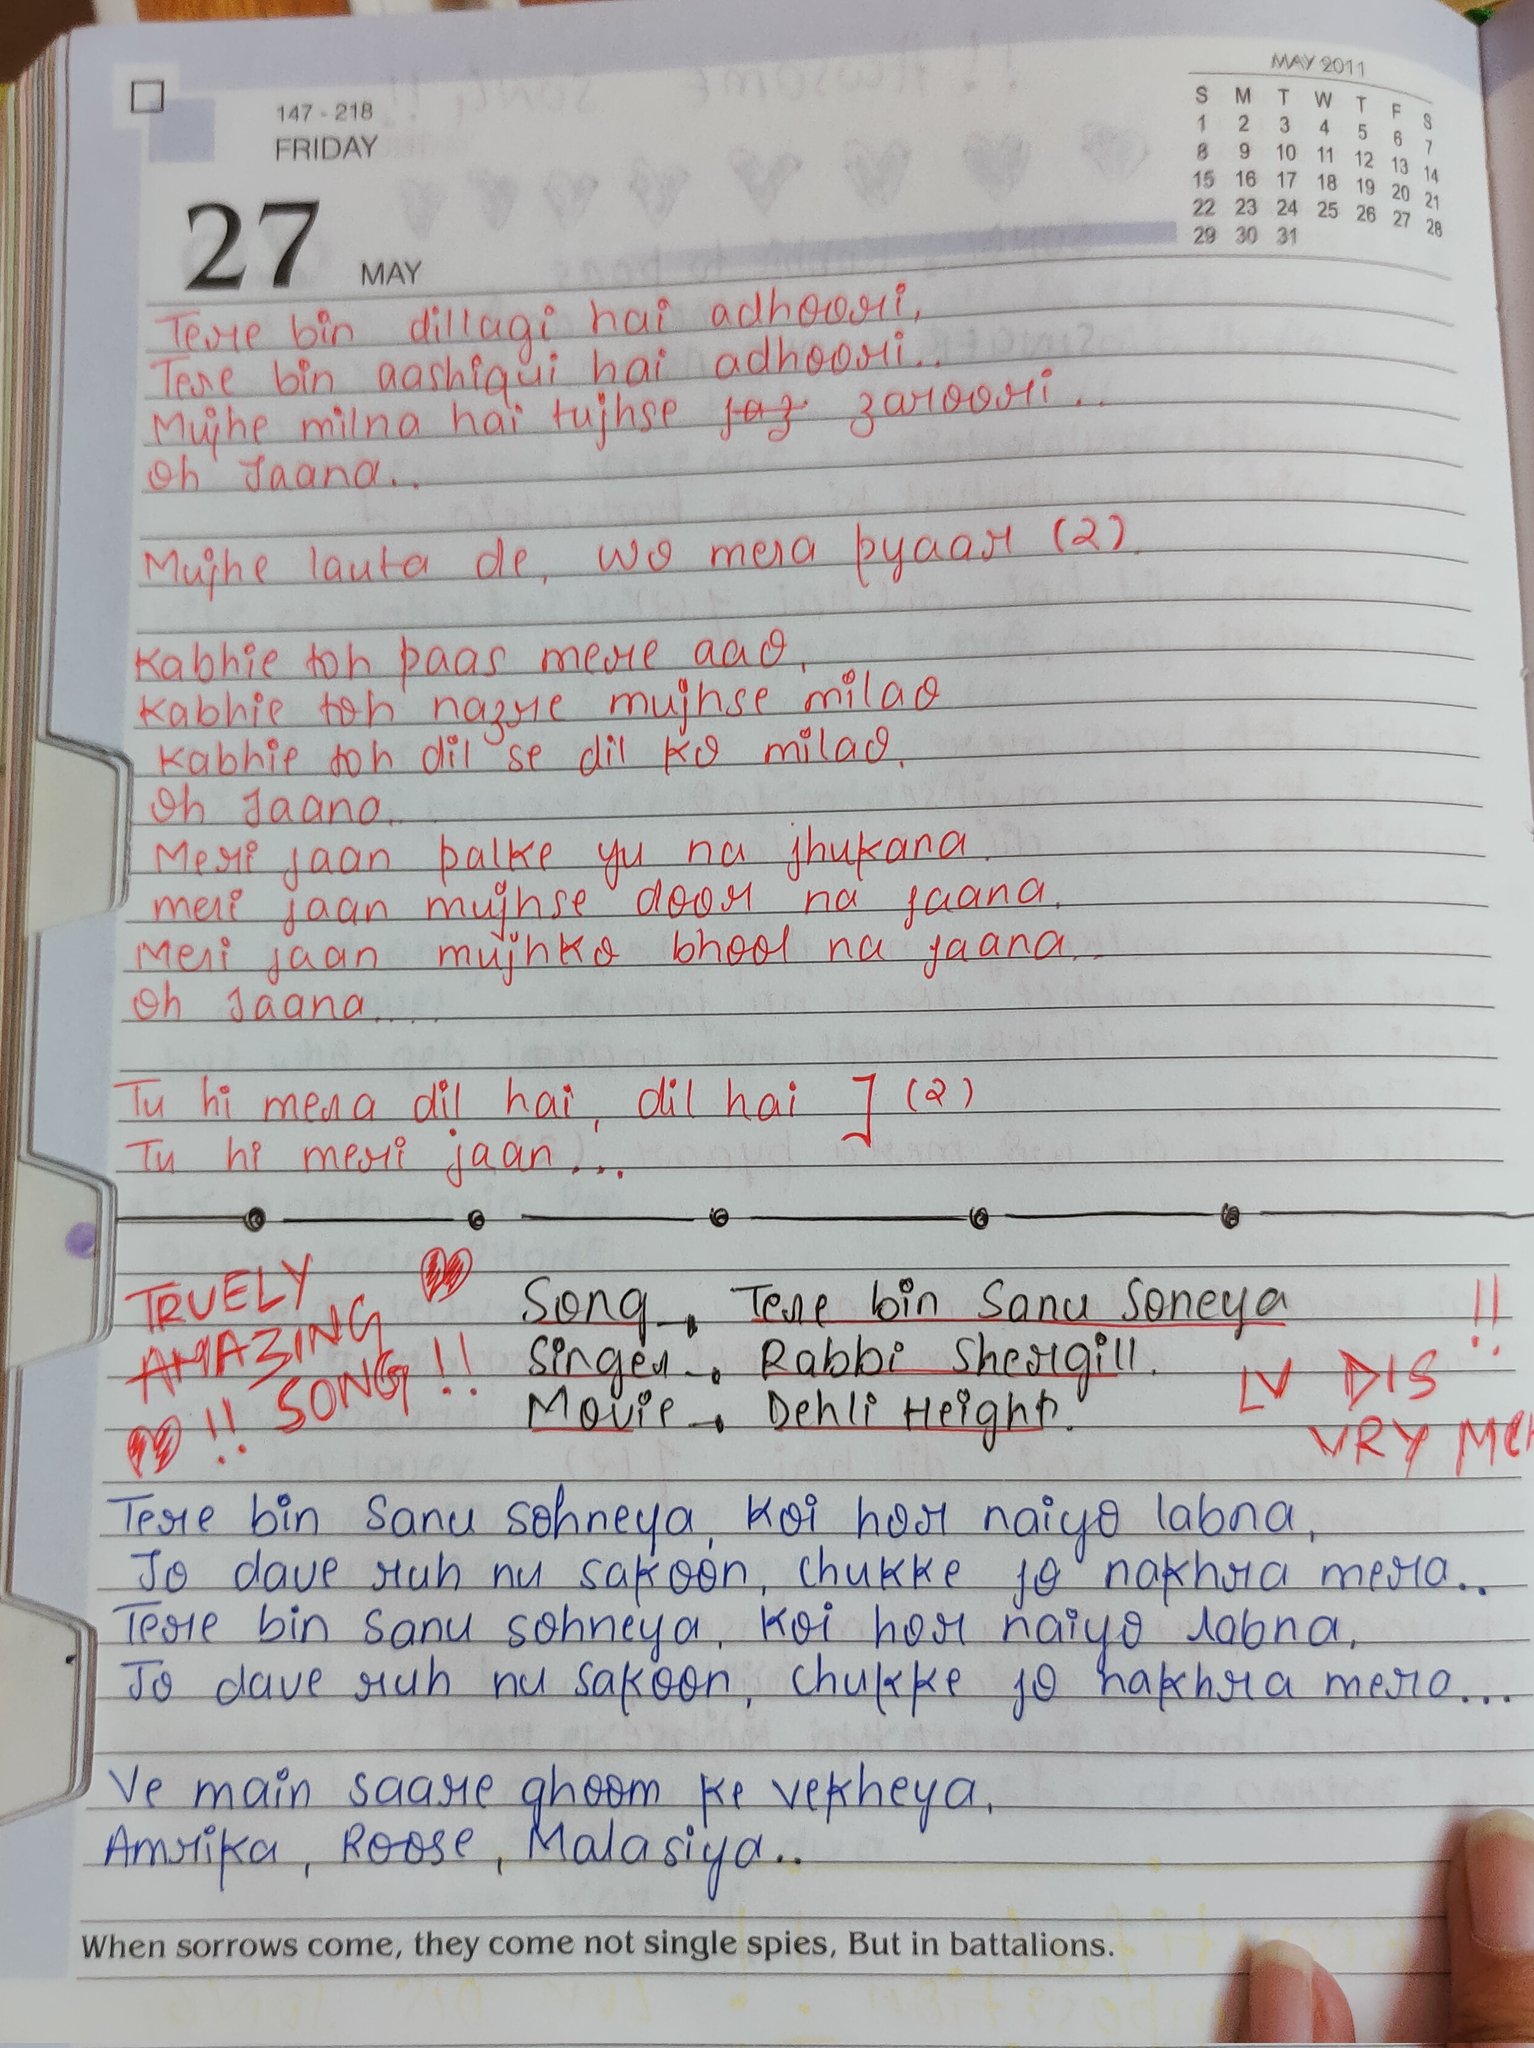 147 - 218
FRIDAY
27 MAY
MAY 2011
S M T W T F S
1 2 3 4 5 6 7
8 9 10 11 12 13 14
15 16 17 18 19 20 21
22 23 24 25 26 27 28
29 30 31
Tere bin dillagi hai adhoori,
Tere bin aashiqui hai adhoori..
Mujhe milna hai tujhse zaroori..
Oh Jaana..
Mujhe lauta de, wo mera pyaar (2)
Kabhie toh paas mere aao,
Kabhie toh nazre mujhse milao
Kabhie toh dil se dil ko milao,
Oh Jaana..
Meri jaan palke yu na jhukana
meri jaan mujhse door na jaana,
Meri jaan mujhko bhool na jaana..
Oh Jaana....
Tu hi mera dil hai, dil hai ] (2)
Tu hi meri jaan...
TRUELY
AMAZING
!! SONG !!
Song → Tere bin Sanu Soneya
Singer → Rabbi Shergill.
Movie → Dehli Height.
!!
LV DIS
VRY MCH
Tere bin Sanu sohneya, Koi hor naiyo labna,
Jo dave ruh nu sakoon, chukke jo nakhra mera..
Tere bin Sanu sohneya, Koi hor naiyo labna,
Jo dave ruh nu sakoon, chukke jo nakhra mera...
Ve main saare ghoom ke vekheya,
Amrika, Roose, Malasiya..
When sorrows come, they come not single spies, But in battalions.